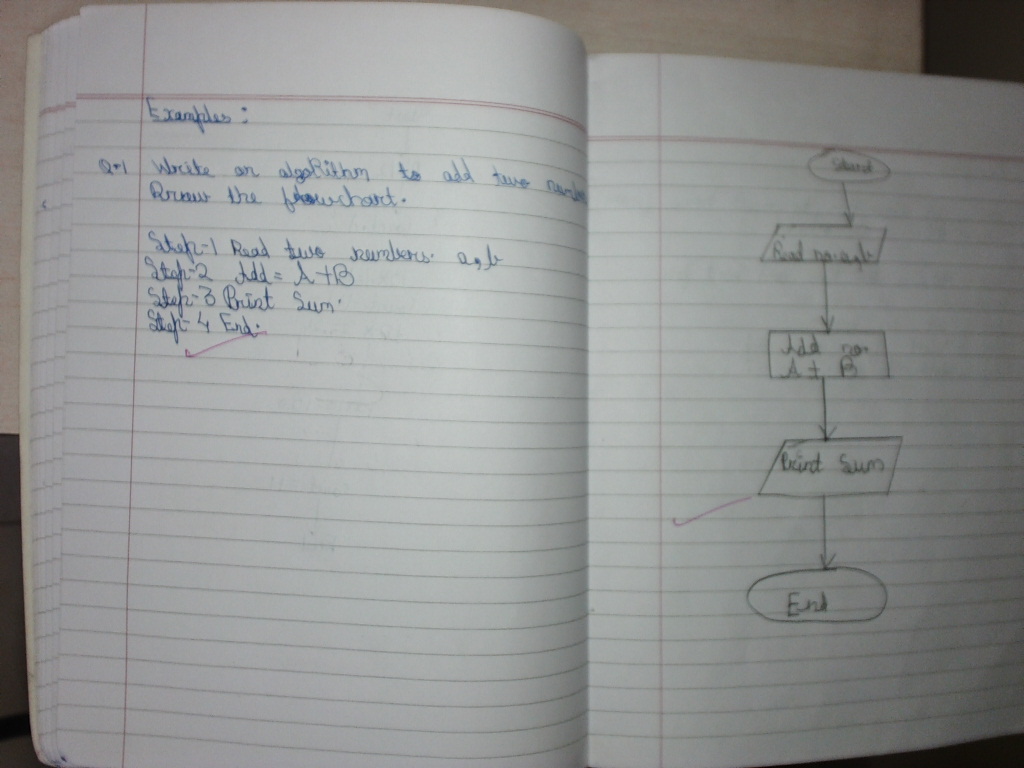 Examples:
Q.1 Write an algorithm to add two
Draw the flowchart.
Step-1 Read two numbers. a,b
Step-2 Add = A+B
Step-3 Print Sum.
Step-4 End.
Start
Read no. a,b
Add no.
A + B
Print Sum
End